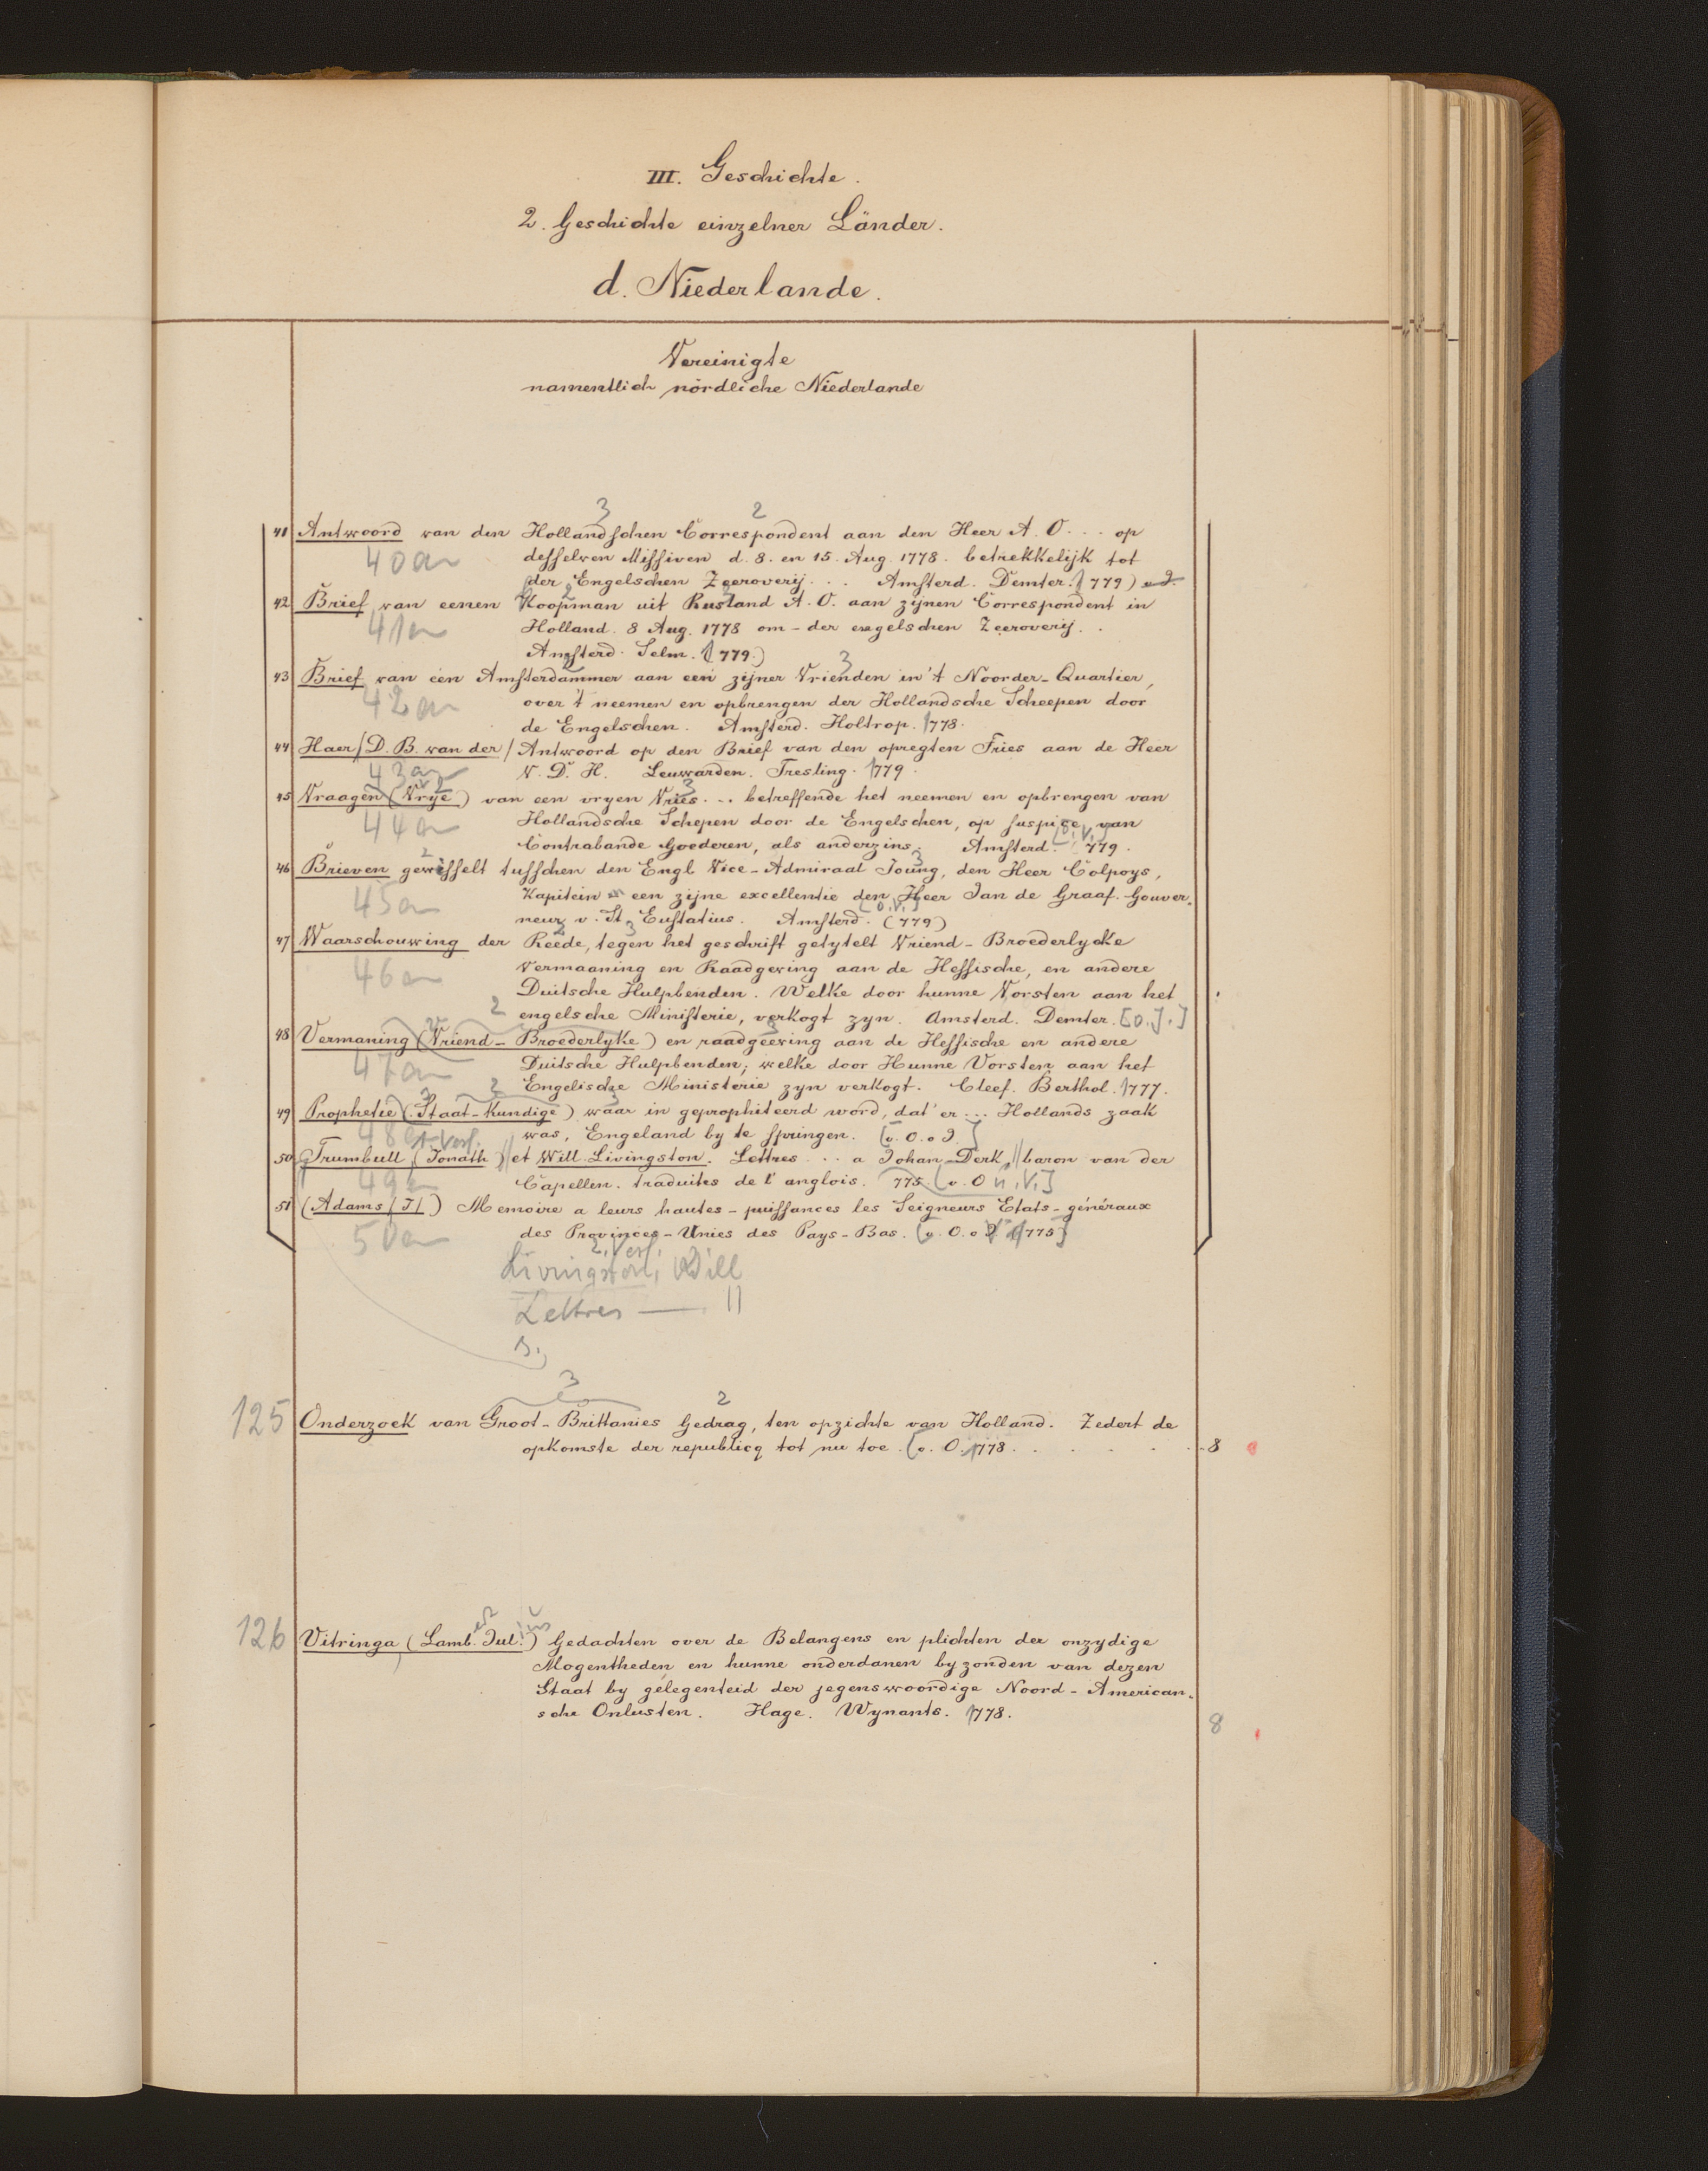 III. Geschichte.
2. Geschichte einzelner Länder.
d. Niederlande.
Vereinigte
namentlich nördliche Niederlande
3 2
41 Antwoord van den Hollandschen Correspondent aan den Heer A. O. . . . op
40a desselven Missiven d. 8. en 15. Aug. 1778. betrekkelijk tot
der Engelschen Zeeroverij . . . Amsterd. Demter. (1779)
42 Brief van eenen Koopman uit Rusland A. O. aan zijnen Correspondent in
41a Holland. 8 Aug. 1778 om - der engelschen Zeeroverij . .
Amsterd. Selm. (1779.)
43 Brief van een Amsterdammer aan een zijner Vrienden in 't Noorder-Quartier,
42a over 't neemen en opbrengen der Hollandsche Scheepen door
de Engelschen. Amsterd. Holtrop. 1778.
44 Haer/D. B. van der/ Antwoord op den Brief van den opregten Fries aan de Heer
43a V. D. H. Leuwarden. Tresling. 1779.
45 Vraagen (Vrye) van een vryen Vries. . . betreffende het neemen en opbrengen van
44a Hollandsche Schepen door de Engelschen, op suspice van
Contrabande Goederen, als anderzins. Amsterd. [o. V.] 779.
46 Brieven gewisselt tusschen den Engl. Vice-Admiraal Joung, den Heer Colpoys,
45a Kapitein en een zijne excellentie den Heer Jan de Graaf. Gouver-
neur v. St. Eustatius. Amsterd. [o. V.] (779)
47 Waarschouwing der Reede, tegen het geschrift getytelt Vriend-Broederlycke
46a Vermaaning en Raadgeving aan de Hessische, en andere
Duitsche Hulpbenden. Welke door hunne Vorsten aan het
engelsche Ministerie, verkogt zyn. Amsterd. Demter. [o. J.]
48 Vermaning (Vriend-Broederlyke) en raadgeeving aan de Hessische en andere
47a Duitsche Hulpbenden, welke door Hunne Vorsten aan het
Engelische Ministerie zyn verkogt. Cleef. Berthol. 1777.
49 Prophetie (Staat-Kundige) waar in geprophiteerd word, dat er . . . Hollands zaak
48a was, Engeland by te springen. [o. O. o J.]
50 Trumbull (Jonath.) et Will. Livingston. Lettres . . . a Johan Derk, baron van der
49a Capellen. traduites de l'anglois. 775. [o. O. u. V.]
51 (Adams/J/.) Memoire a leurs hautes-puissances les Seigneurs Etats-généraux
50a des Provinces-Unies des Pays-Bas. [o. O. o V. (1775]
2. Verf.
Livingston, Will
Lettres — ||
s.
3 2
125 Onderzoek van Groot-Brittanies Gedrag, ten opzichte van Holland. Zedert de
opkomste der republicq tot nu toe. [o. O. 1778. . . . . . . 8
126 Vitringa (Lamb. Jul.) Gedachten over de Belangens en plichten der onzydige
Mogentheden en hunne onderdanen byzonden van dezen
Staat by gelegenteid der jegenswoordige Noord-American-
sche Onlusten. Hage. Wynants. 1778.
8